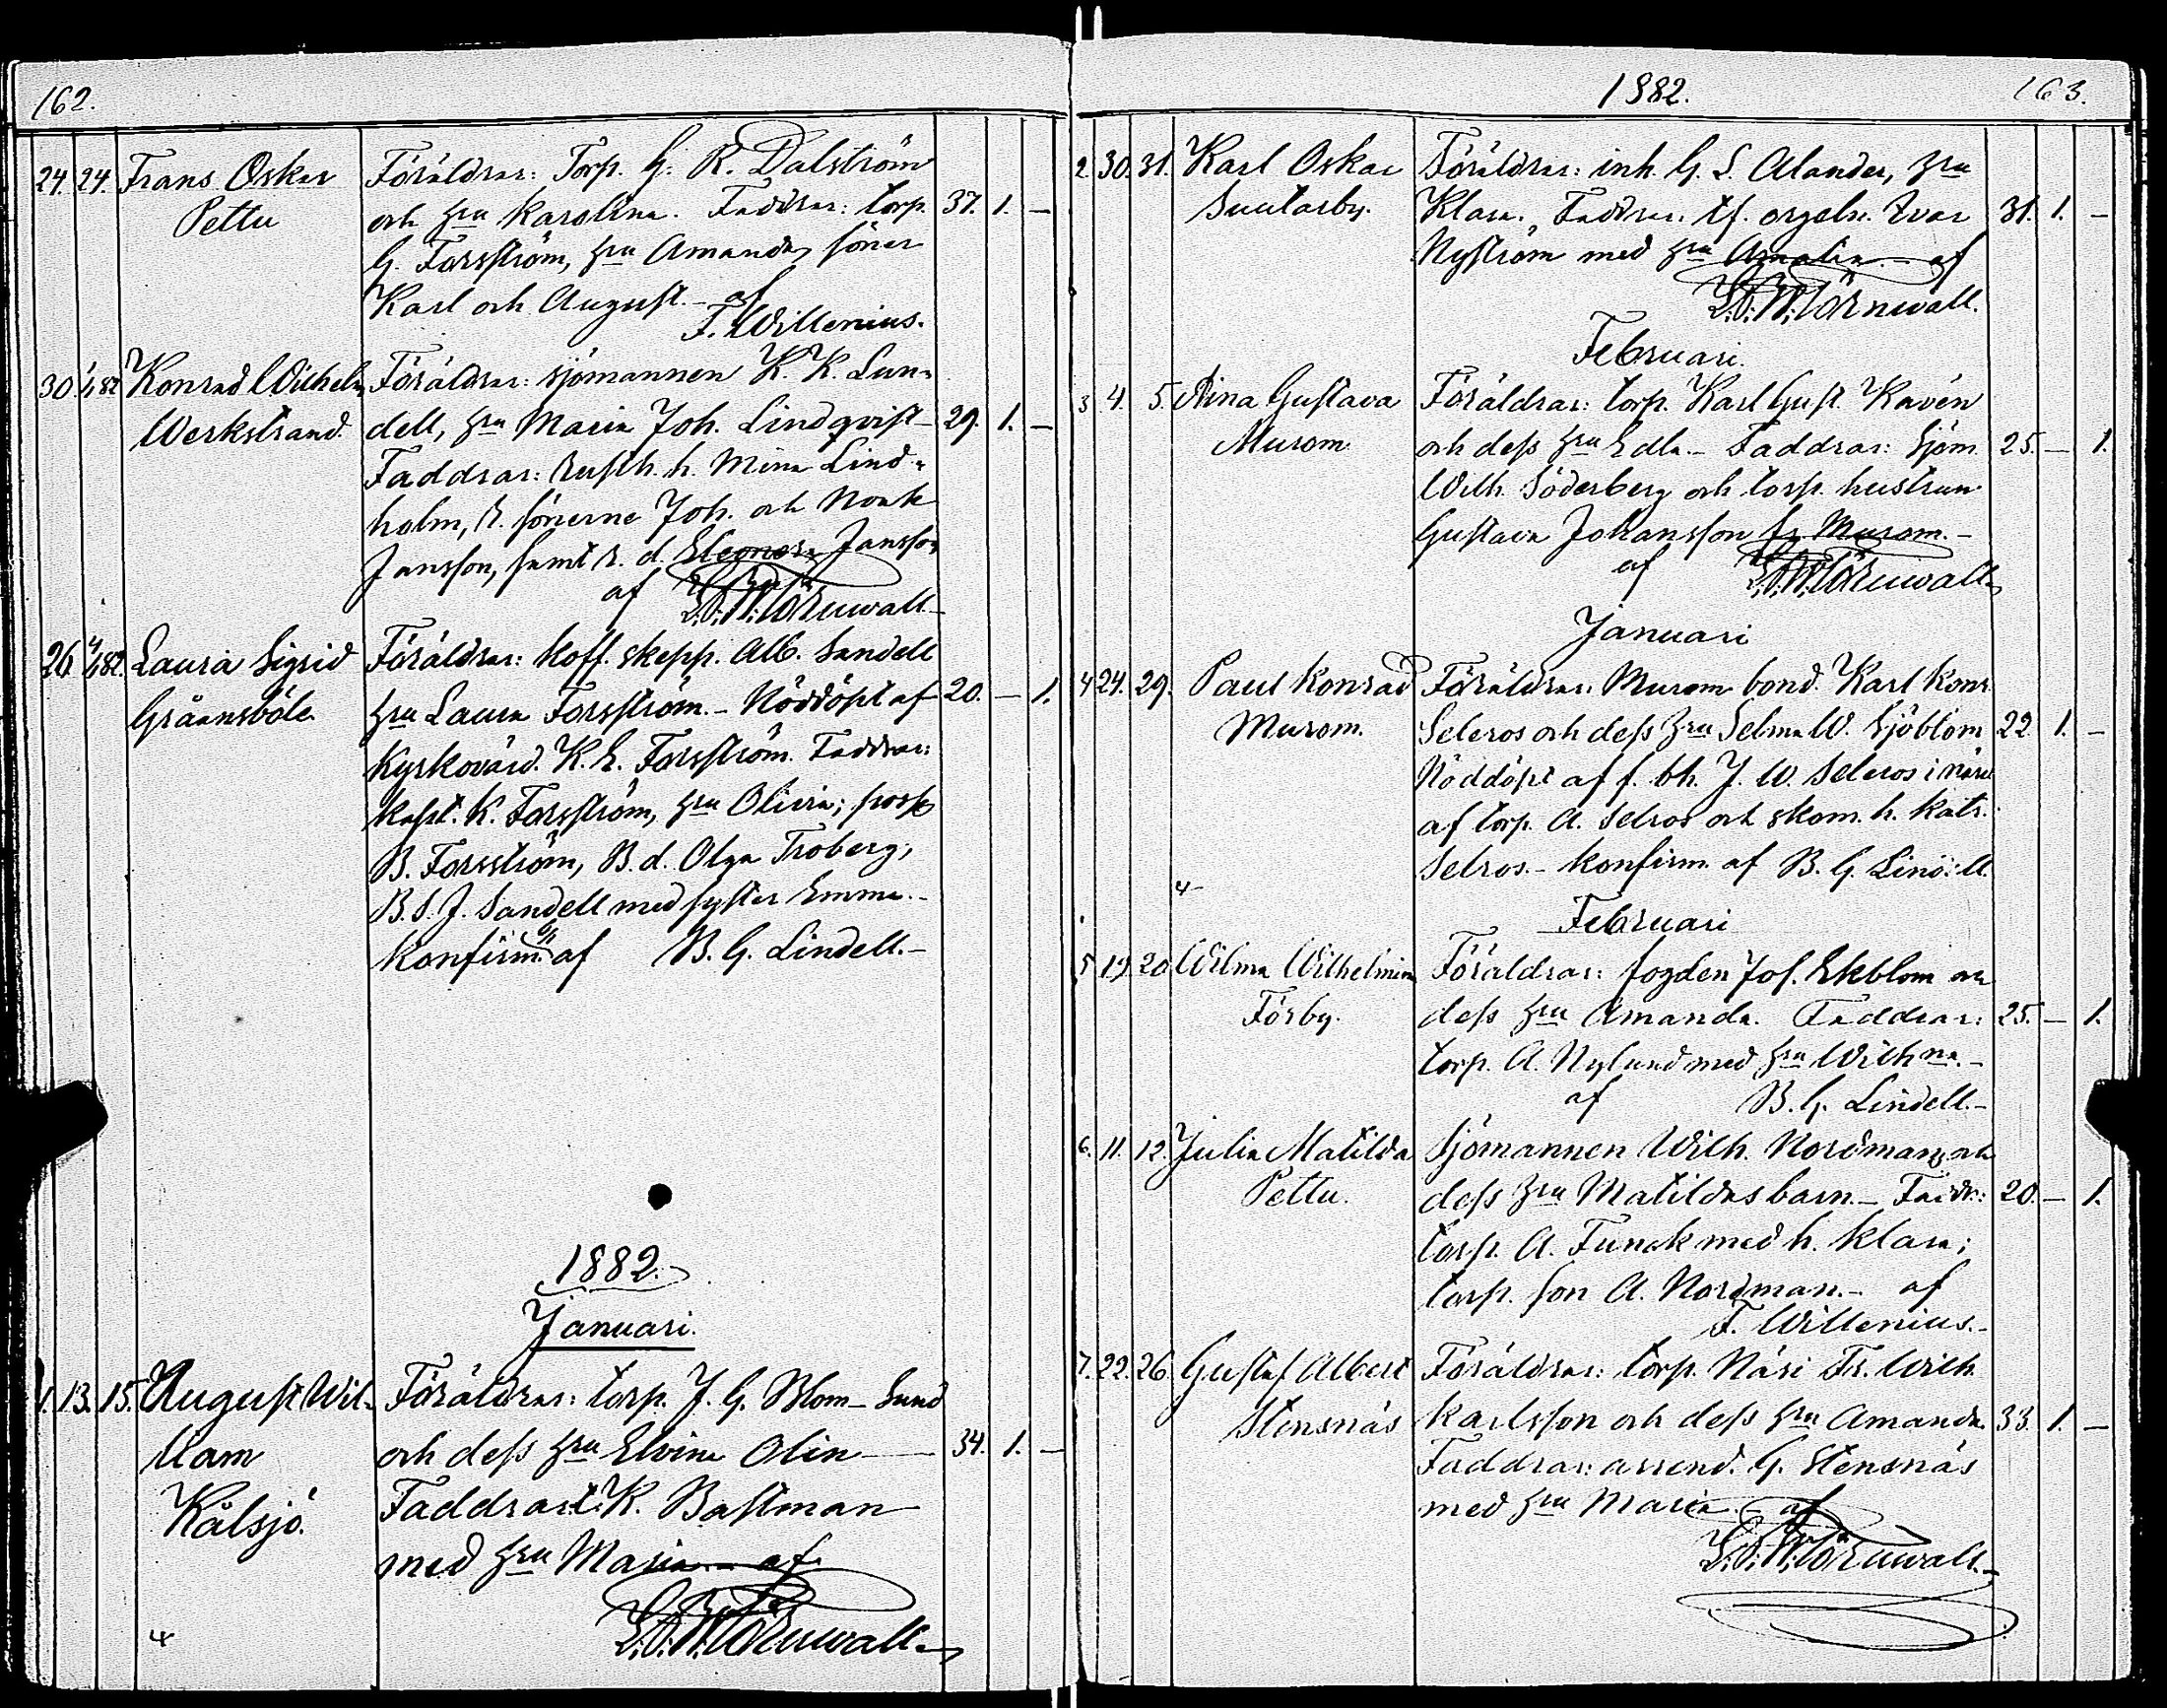 162.
24. 24. Frans Oskar Föräldrar: Torp. G. R. Dalström
Pettu och hru Karolina. Faddrar: torp. 37. 1. —
G. Forsström, hru Amanda, söner
Karl och August. - af
F. Willenius.
30. 1/1 82 Konrad Wilhelm Föräldrar: sjömannen K. K. Lun-
Werkstrand. dell, hru Maria Joh. Lindqvist — 29. 1. —
Faddrar: rusth. h. Mina Lind-
holm, r. sönerne Joh. och Noak
Jansson, samt r. d. Eleonora Jansson
af Törnwall
26. 4/1 82. Laura Sigrid Föräldrar: koff. skepp. Alb. Sandell
Gråansböle hru Laura Forsström. - Nöddöpt af 20. — 1.
Kyrkovärd. K. E. Forsström. Faddrar:
kapt. K. Forsström, hru Olivia;
B. Forsström, B. d. Olga Troberg,
B. S. J. Sandell med syster Emma. -
Konfirm. af B. G. Lindell. -
1882.
Januari.
1. 13. 15. August Wil- Föräldrar: torp. J. G. Blom - Sund
liam och dess hru Elvina Olin — 34. 1. —
Kålsjö. Faddrar: t. K. Bastman
med hru Maria. - af
Törnwall
1882. 163.
2. 30. 31. Karl Oskar Föräldrar: inh. G. S. Alander, hru
Suutarby. Klara. Faddrar: tf. orgeln. Ivar 31. 1. —
Nyström med hru Amalia. - af
Törnwall.
Februari.
3 4. 5. Aina Gustava Föräldrar: torp. Karl Gust. Kavén
Murom och dess hru Edla. - Faddrar: Sjöm. 25. — 1.
Wilh. Söderberg och torp. hustrun
Gustava Johansson fr. Murom. -
af Törnwall
Januari
4 24. 29. Paul Konrad Föräldrar: Murom bond. Karl Konr.
Murom. Seleros och dess hru Selma W. Sjöblom 22. 1. —
Nöddöpt af f. bh. J. W. Seleros i närv.
af torp. A. Selros och skom. h. Katr.
Selros. - Konfirm. af B. G. Lindell.
Februari
5 19 20 Wilma Wilhelmina Föräldrar: fogden Jos. Ekblom och
Förby. dess hru Amanda. Faddrar: 25. — 1.
torp. A. Nylund med hru Wilhna. -
af B. G. Lindell. -
6. 11. 12. Julia Matilda Sjömannen Wilh. Nordman och
Pettu. dess hru Matildas barn. - Faddr.: 20. — 1.
torp. A. Funck med h. Klara;
torp. son A. Nordman. - af
F. Willenius. -
7. 22. 26. Gustaf Albert Föräldrar: torp. Näsi Fr. Wilh.
Stensnäs Karlsson och dess hru Amanda 33. 1. —
Faddrar: arrend. G. Stensnäs
med hru Maria - af
Törnwall.